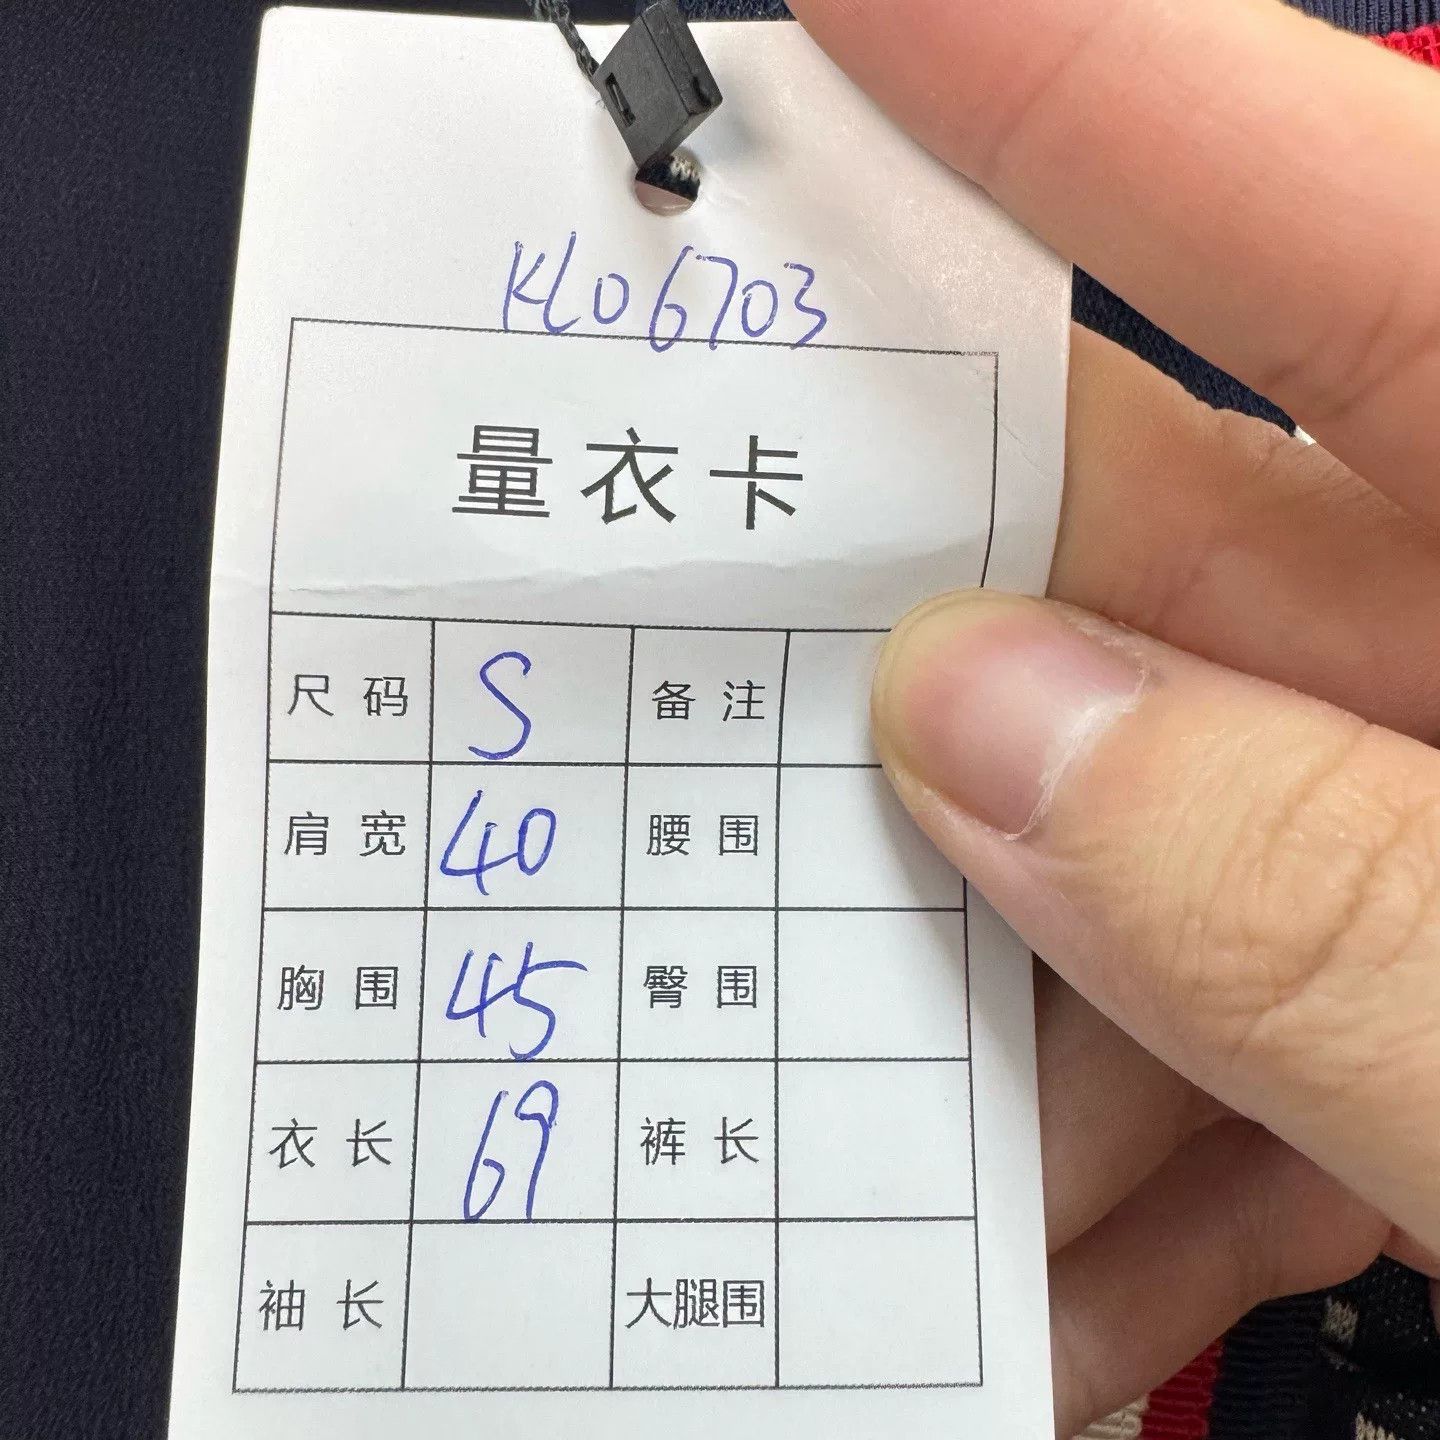 KL06703
量衣卡
尺码 S 备注
肩宽 40 腰围
胸围 45 臀围
衣长 69 裤长
袖长 大腿围